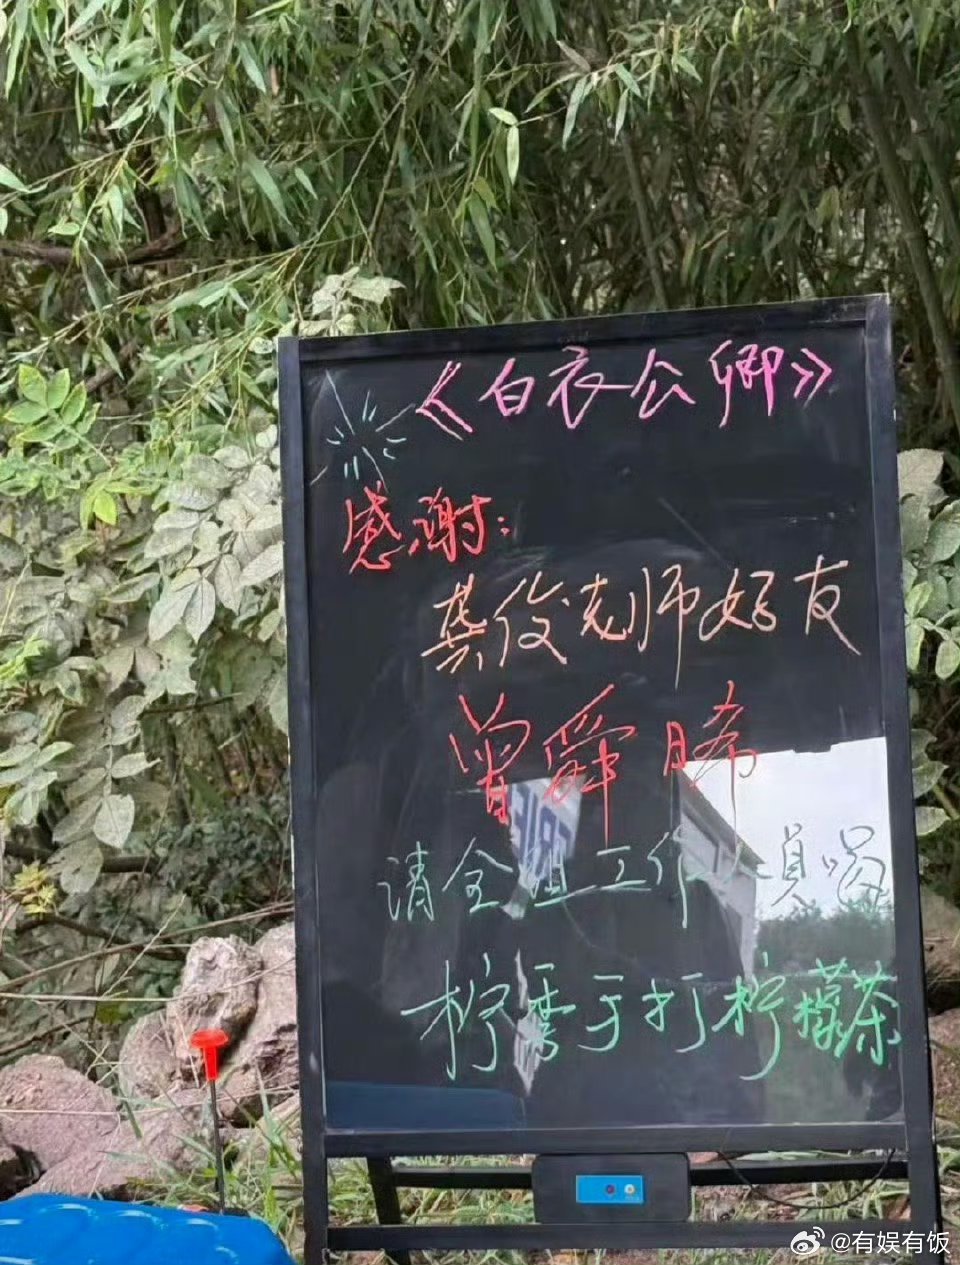 《白衣公卿》
感谢:
龚俊老师好友
曾舜晞
请全组工作人员喝
柠季手打柠檬茶
@有娱有饭